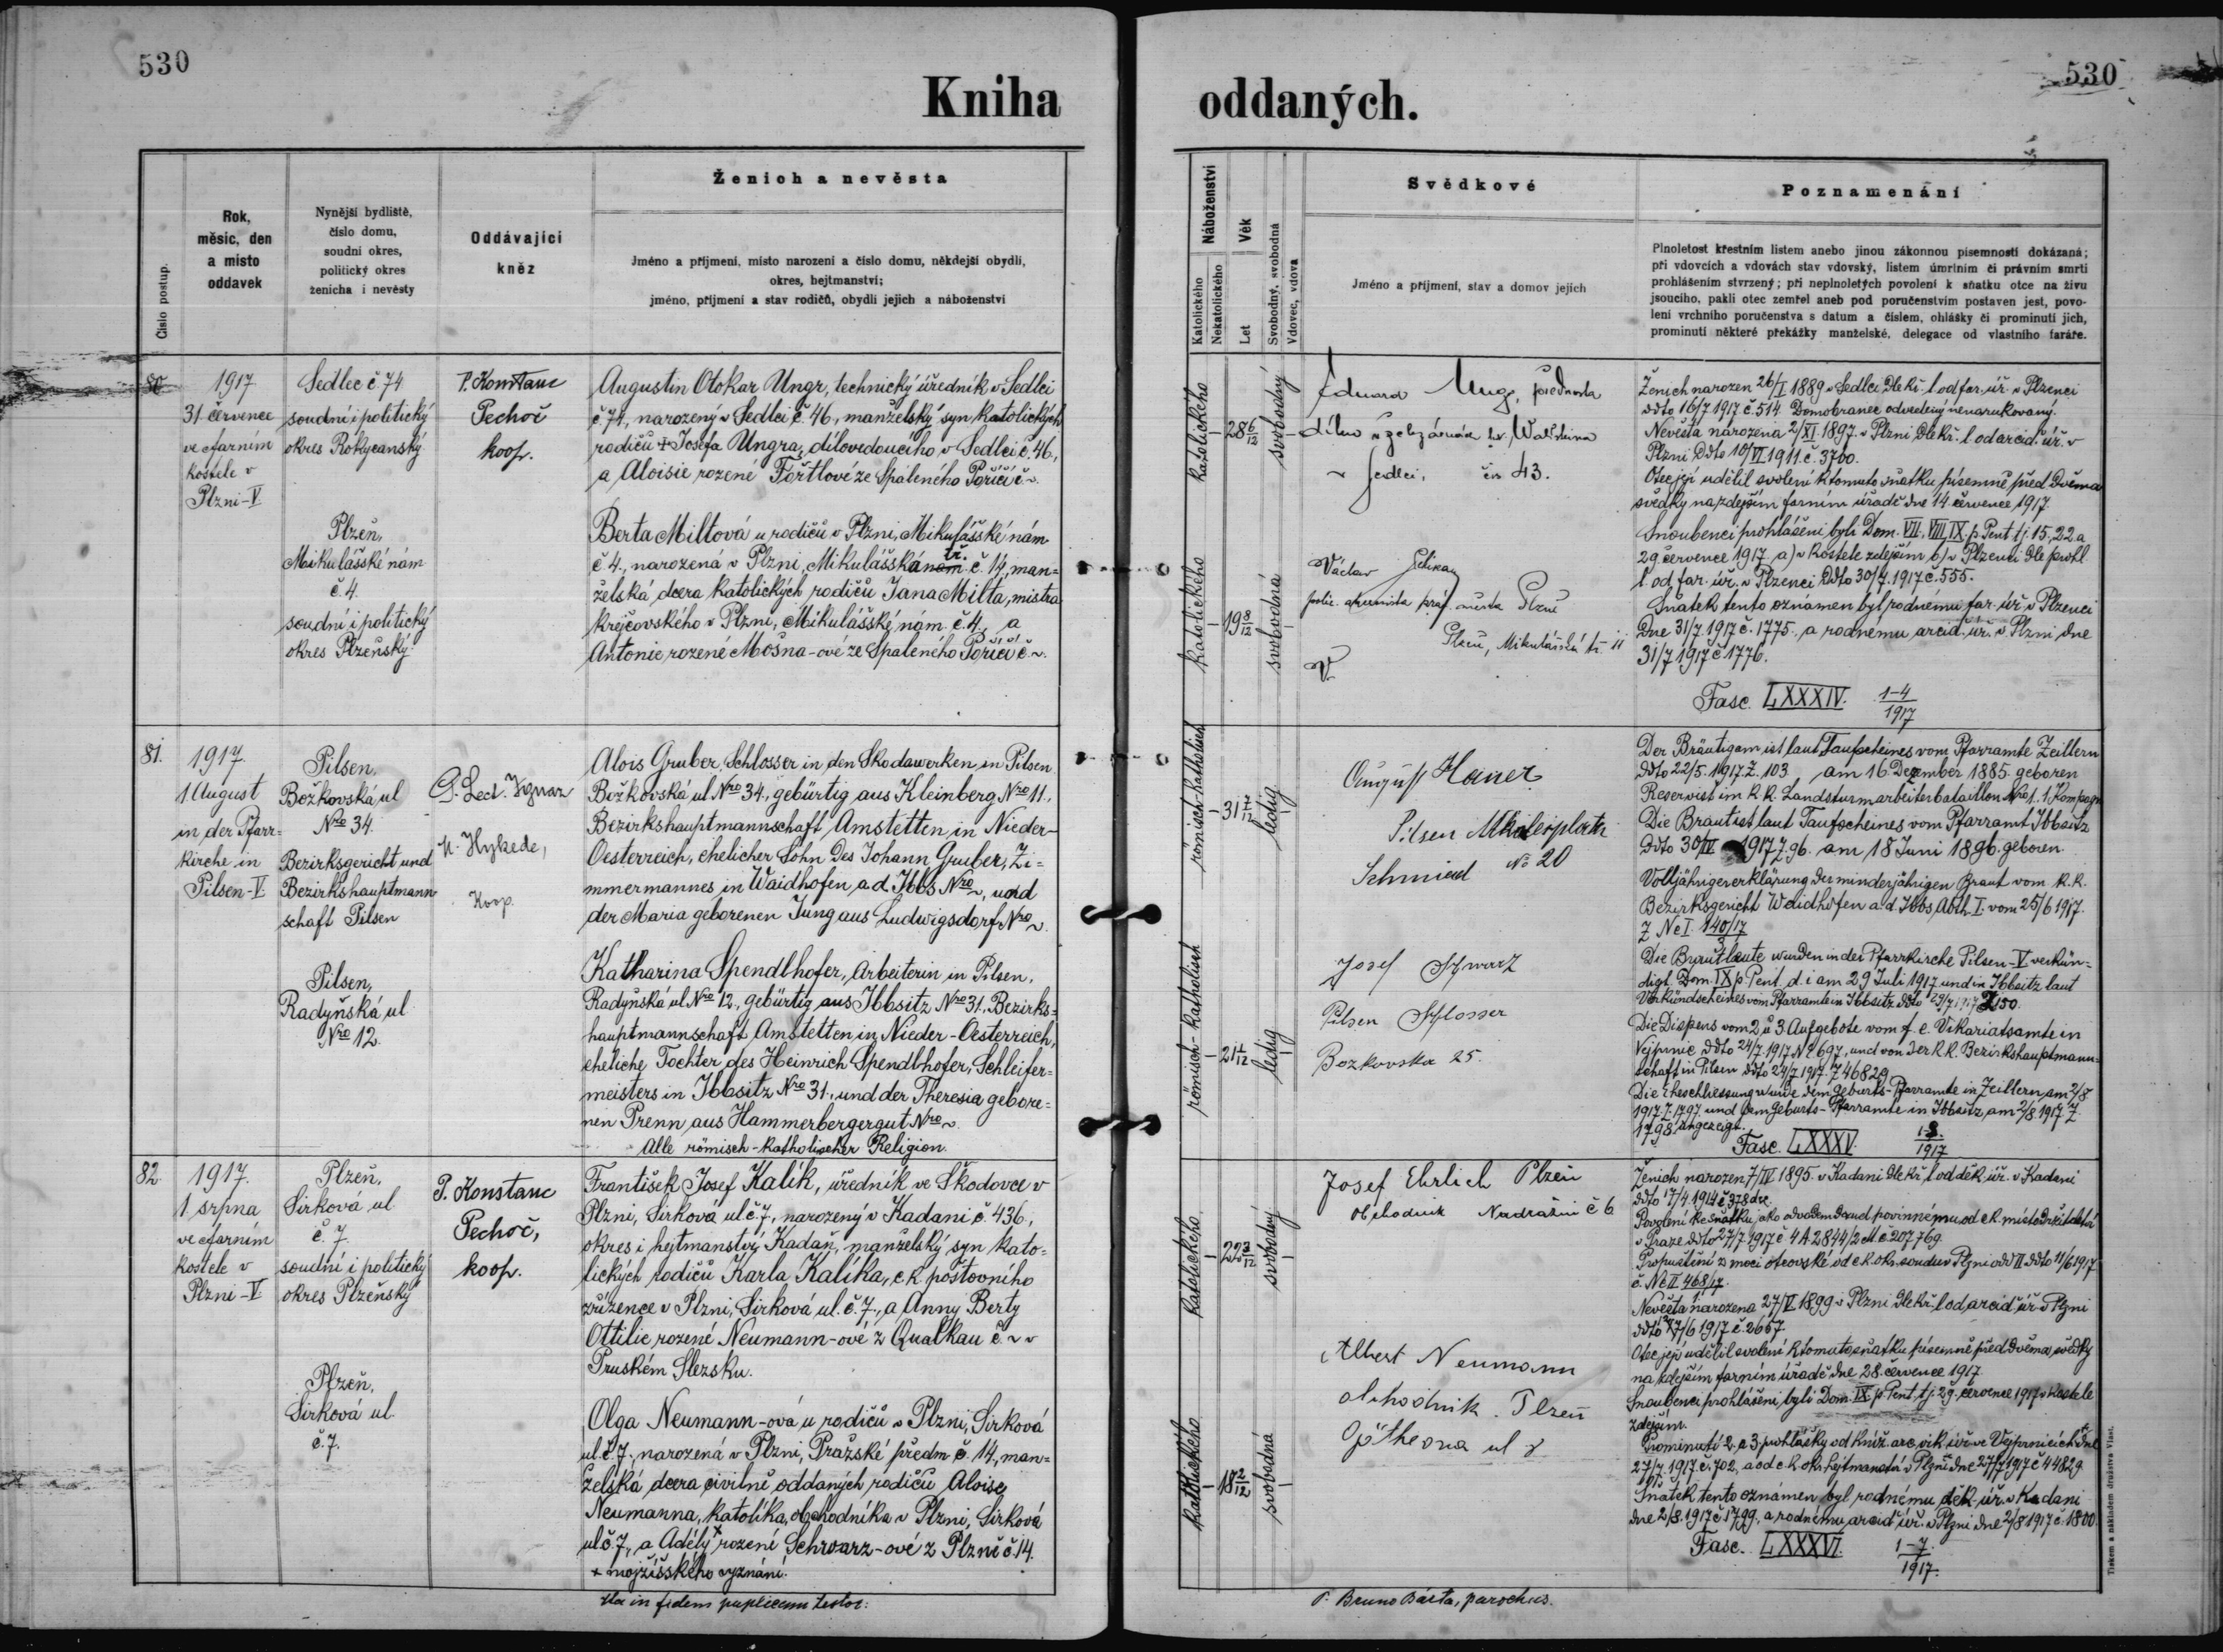 530
530
Kniha oddaných.
Číslo postup.
Rok,
měsíc, den
a místo
oddavek
Nynější bydliště,
číslo domu,
soudní okres,
politický okres
ženicha i nevěsty
Oddávající
kněz
Ženich a nevěsta
Jméno a příjmení, místo narození a číslo domu, někdejší obydlí,
okres, hejtmanství;
jméno, příjmení a stav rodičů, obydlí jejich a náboženství
Náboženství
Katolického
Nekatolického
Věk
Let
Svobodný, svobodná
Vdovec, vdova
Svědkové
Jméno a příjmení, stav a domov jejich
Poznamenání
Plnoletost křestním listem anebo jinou zákonnou písemností dokázaná;
při vdovcích a vdovách stav vdovský, listem úmrtním či právním smrti
prohlášením stvrzený; při neplnoletých povolení k sňatku otce na živu
jsoucího, pakli otec zemřel aneb pod poručenstvím postaven jest, povo-
lení vrchního poručenstva s datum a číslem, ohlášky či prominutí jich,
prominutí některé překážky manželské, delegace od vlastního faráře.
80
1917
31. července
ve farním
kostele v
Plzni-V
Sedlec č 74
soudní i politický
okres Rokycanský
Plzeň,
Mikulášské nám
č 4.
soudní i politický
okres Plzeňský
P. Konstanc
Pechoč
koop.
Augustin Otokar Ungr, technický úředník v Sedlci
č. 74, narozený v Sedlci č. 46, manželský syn katolických
rodičů + Josefa Ungra, dílovedoucího v Sedlci č. 46,
a Aloisie rozené Fořtlové ze Spáleného Poříčí č ~.
Berta Miltová u rodičů v Plzni, Mikulášské nám
č 4., narozená v Plzni, Mikulášská nám tř. č. 14, man=
želská dcera katolických rodičů Jana Milta, mistra
krejčovského v Plzni, Mikulášské nám. č. 4., a
Antonie rozené Mošna-ové ze Spáleného Poříčí č ~.
katolického
28 6/12
svobodný
katolického
19 8/12
svobodná
Eduard Ungr, přednosta
dílen v železárnách hr. Waldsteina
v Sedlci, čís 43.
Václav
Plzeň
Plzeň, Mikulášská tř. 11
V.
Ženich narozen 26/I 1889 v Sedlci dle kř. l. od far. úř. v Plzenci
ddto 16/7 1917 č. 514. Domobranec odvedený nenarukovaný.
Nevěsta narozena 2/XI. 1897. v Plzni dle kř. l. od arcid. úř. v
Plzni ddto 10/VI 1911. č. 3700.
Otec její udělil svolení k tomuto sňatku písemně před dvěma
svědky na zdejším farním úřadě dne 14. července 1917.
Snoubenci prohlášeni byli Dom. VII., VIII, IX. p. Pent. t.j. 15., 22. a
29. července 1917. a) v kostele zdejším b) v Plzenci dle prohl.
l. od far. úř. v Plzenci ddto 30/7. 1917 č. 555.
Sňatek tento oznámen byl rodnému far. úř. v Plzenci
dne 31/7. 1917 č. 1775. a rodnému arcid. úř. v Plzni dne
31/7 1917 č 1776.
Fasc. LXXXIV. 1-4/1917
81.
1917
1 August
in der Pfarr=
kirche in
Pilsen-V
Pilsen,
Božkovská ul
Nro 34.
Bezirksgericht und
Bezirkshauptmann
schaft Pilsen
Pilsen,
Radyňská ul
Nro 12.
Ignaz
Koop.
Alois Gruber, Schlosser in den Skodawerken in Pilsen
Božkovská ul Nro 34., gebürtig aus Kleinberg Nro 11.,
Bezirkshauptmannschaft Amstetten in Nieder-
Oesterreich, ehelicher Sohn des Johann Gruber, Zi=
mmermannes in Waidhofen a.d. Ibbs Nro ~, und
der Maria geborenen Jung aus Ludwigsdorf Nro ~.
Katharina Spendlhofer, Arbeiterin in Pilsen,
Radyňská ul Nro 12., gebürtig aus Ibbsitz Nro 31., Bezirks=
hauptmannschaft Amstetten in Nieder-Oesterreich,
eheliche Tochter des Heinrich Spendlhofer, Schleifer=
meisters in Ibbsitz Nro 31., und der Theresia gebore=
nen Prenn aus Hammerbergergut Nro ~.
Alle römisch-katholischer Religion.
römisch-katholisch
31 7/12
ledig
römisch-katholisch
21 1/12
ledig
August Haner
Pilsen
Schmied No 20
Josef Schwarz
Pilsen Schlosser
Bozkovska 25.
Der Bräutigam ist laut Taufscheines vom Pfarramte Zeillern
ddto 22/5. 1917. Z. 103 am 16. Dezember 1885. geboren
Reservist im k.k. Landsturmarbeiterbataillon Nro 1. 1. Kompagn
Die Braut ist laut Taufscheines vom Pfarramt Ibbsitz
ddto 30/IV 1917 Z. 96. am 18 Juni 1896. geboren.
Volljährigererklärung der minderjährigen Braut vom k.k.
Bezirksgericht Waidhofen a.d. Ibbs, Abth. I. vom 25/6 1917.
Z Nc I. 140/17/3
Die Brautleute wurden in der Pfarrkirche Pilsen-V verkün=
digt. Dom. IX p. Pent. d. i am 29 Juli 1917 und in Ibbsitz laut
Verkündscheines vom Pfarramte in Ibbsitz ddto 29/7 1917 Z 150.
Die Dispens vom 2. u 3. Aufgebote vom f. e. Vikariatsamte in
Vejprnic ddto 24/7. 1917 No 697, und von der k.k. Bezirkshauptmann=
schaft in Pilsen ddto 24/7. 1917. Z 46829
Die Eheschliessung wurde dem Geburts-Pfarramte in Zeillern am 2/8
1917. Z. 1797. und dem Geburts-Pfarramte in Ibbsitz, am 2/8 1917 Z.
1798. angezeigt.
Fasc. LXXXV. 1-8/1917
82
1917.
1 srpna
ve farním
kostele v
Plzni-V
Plzeň,
Sirková ul
č. 7,
soudní i politický
okres Plzeňský
Plzeň,
Sirková ul
č. 7.
P. Konstanc
Pechoč,
koop.
František Josef Kalík, úředník ve Škodovce v
Plzni, Sirková ul č. 7, narozený v Kadani č. 436,
okres i hejtmanství Kadaň, manželský syn kato=
lických rodičů Karla Kalíka, c.k. poštovního
zřízence v Plzni, Sirková ul. č. 7., a Anny Berty
Ottilie rozené Neumann-ové z Qualkau č ~ v
Pruském Slezsku.
Olga Neumann-ová u rodičů v Plzni, Sirková
ul. č. 7., narozená v Plzni, Pražské předm. č. 14., man=
želská dcera civilně oddaných rodičů Aloise
Neumanna, katolíka, obchodníka v Plzni, Sirková
ul č. 7, a Adély + rozené Schwarz-ové z Plzně č. 14.
+ mojžíšského vyznání.
katolického
22 3/12
svobodný
katolického
18 2/12
svobodná
Josef Ehrlich Plzeň
obchodník Nadražní č 6
Albert Neumann
obchodník. Plzeň
Götheova ul 8
Ženich narozen 7/IV 1895. v Kadani dle kř. l. od děk. úř. v Kadani
ddto 7/4. 1914 č 378 dre.
Povolení ke sňatku jako odvodem dosud povinnému od c.k. místodržitelství
v Praze ddto 27/7. 1917 č 4A 2844/2 M. č 207769.
Propuštění z moci otcovské od c.k. okr. soudu v Plzni odd II ddto 11/6 1917
č. Nc II. 468/17.
Nevěsta narozena 27/V. 1899 v Plzni dle kř. l. od arcid. úř. v Plzni
ddto 27/6 1917 č. 2667.
Otec její udělil svolení k tomuto sňatku písemně před dvěma svědky
na zdejším farním úřadě dne 28. července 1917.
Snoubenci prohlášeni, byli Dom. IX. p. Pent. t.j. 29. července 1917 v kostele
zdejším.
Prominutí 2. a 3. prohlášky od kníž. arc. vik. úř. ve Vejprnicích dne
27/7. 1917. č. 702, a od c.k. okr. hejtmanství v Plzni dne 27/7 1917 č 44829
Sňatek tento oznámen byl rodnému děk. úř. v Kadani
dne 2/8. 1917 č 1799, a rodnému arcid. úř. v Plzni dne 2/8 1917 č. 1800
Fasc. LXXXVI. 1-7/1917.
Ita in fidem puplicam testor:
P. Bruno Bárta, parochus.
Tiskem a nákladem družstva Vlast.